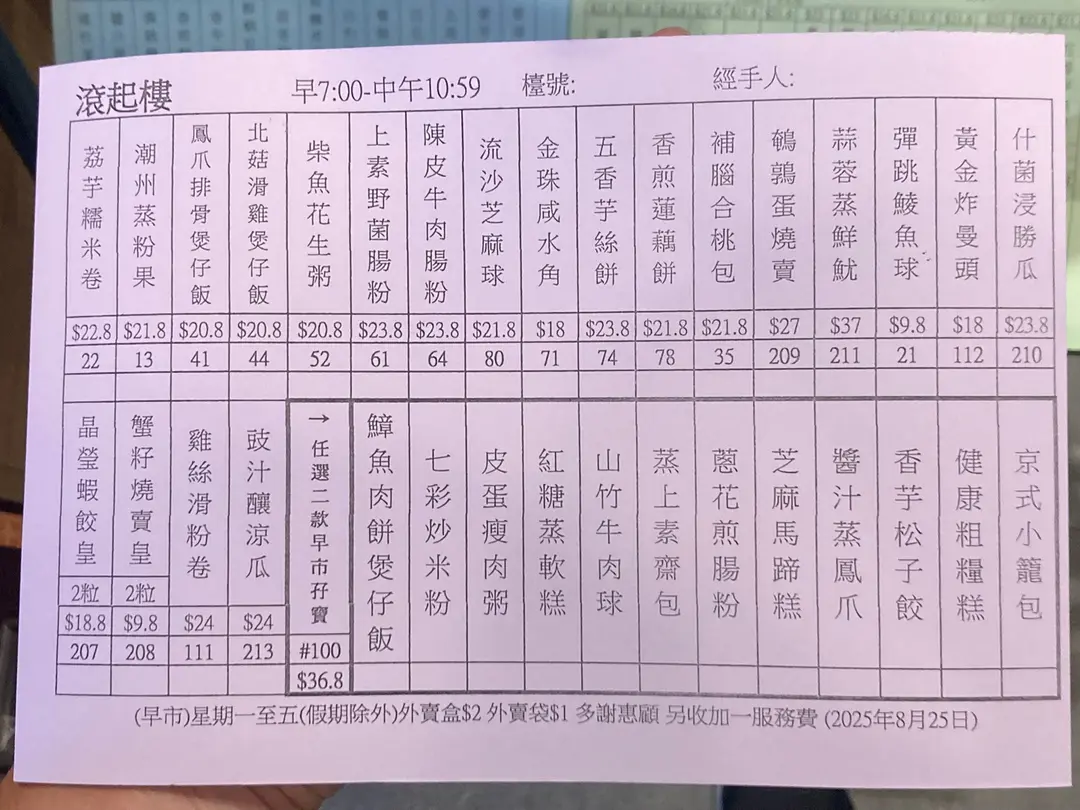 滾起樓 早7:00-中午10:59 檯號: 經手人:
荔芋糯米卷
$22.8
22
潮州蒸粉果
$21.8
13
鳳爪排骨煲仔飯
$20.8
41
北菇滑雞煲仔飯
$20.8
44
柴魚花生粥
$20.8
52
上素野菌腸粉
$23.8
61
陳皮牛肉腸粉
$23.8
64
流沙芝麻球
$21.8
80
金珠咸水角
$18
71
五香芋絲餅
$23.8
74
香煎蓮藕餅
$21.8
78
補腦合桃包
$21.8
35
鵪鶉蛋燒賣
$27
209
蒜蓉蒸鮮魷
$37
211
彈跳鯪魚球
$9.8
21
黃金炸曼頭
$18
112
什菌浸勝瓜
$23.8
210
晶瑩蝦餃皇
2粒
$18.8
207
蟹籽燒賣皇
2粒
$9.8
208
雞絲滑粉卷
$24
111
豉汁釀涼瓜
$24
213
→任選二款早市孖寶
#100
$36.8
鱆魚肉餅煲仔飯
七彩炒米粉
皮蛋瘦肉粥
紅糖蒸軟糕
山竹牛肉球
蒸上素齋包
蔥花煎腸粉
芝麻馬蹄糕
醬汁蒸鳳爪
香芋松子餃
健康粗糧糕
京式小籠包
(早市)星期一至五(假期除外)外賣盒$2 外賣袋$1 多謝惠顧 另收加一服務費 (2025年8月25日)